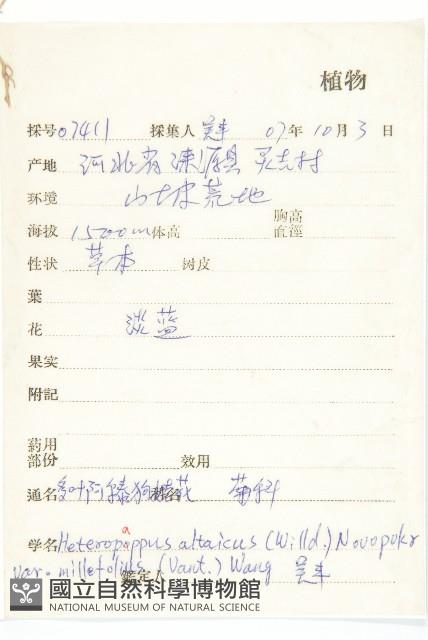 植物
採号07411 採集人 07年10月3日
产地 河北省涞源县 村
环境 山坡荒地
海拔 1500m 体高 胸高直徑
性状 草本 树皮
葉
花 淡蓝
果实
附記
药用部份 效用
通名 叶阿 狗娃花 菊科
学名 Heteropappus altaicus (Willd.) Novopokr
var. millefolius (Vant.) Wang
鑒定人
國立自然科學博物館
NATIONAL MUSEUM OF NATURAL SCIENCE